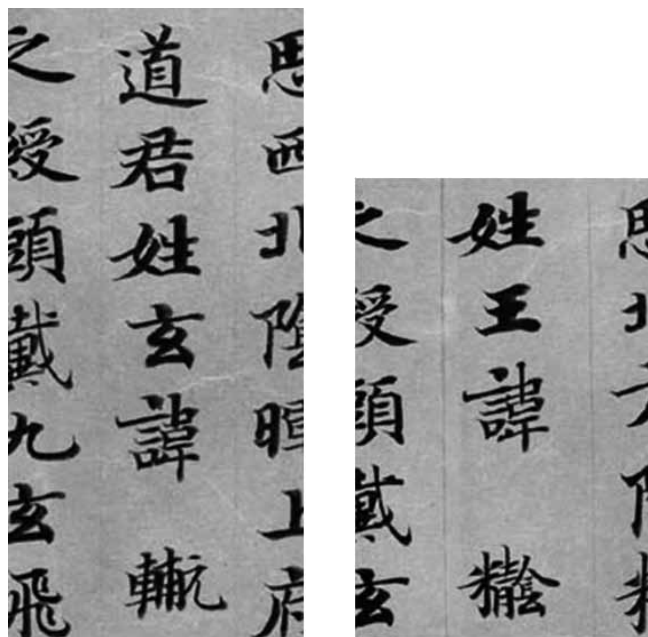 思西北陰上府
道君姓玄諱
之綬頭戴九玄飛
思北方陰精
姓王諱
之綬頭戴玄